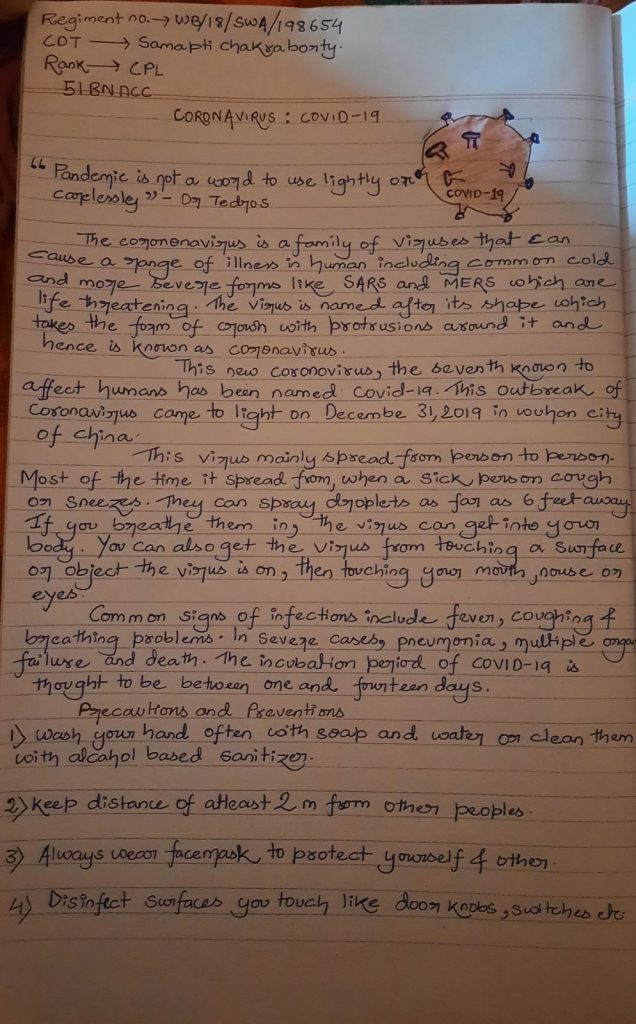 Regiment no. → WB/18/SWA/198654
CDT → Samapti Chakraborty.
Rank → CPL
51 BN NCC
CORONAVIRUS : COVID-19
COVID-19
“ Pandemic is not a word to use lightly or
carelessley ” - Dr Tedros
The corononavirus is a family of viruses that can
cause a range of illness in human including common cold
and more severe forms like SARS and MERS which are
life threatening. The virus is named after its shape which
takes the form of crown with protrusions around it and
hence is known as coronavirus.
This new coronovirus, the seventh known to
affect humans has been named Covid-19. This outbreak of
Coronavirus came to light on Decembe 31, 2019 in wuhan city
of china.
This virus mainly spread from person to person.
Most of the time it spread from, when a sick person cough
or sneezes. They can spray droplets as far as 6 feet away.
If you breathe them in, the virus can get into your
body. You can also get the virus from touching a surface
or object the virus is on, then touching your mouth, nouse or
eyes.
Common signs of infections include fever, coughing &
breathing problems. In severe cases, pneumonia, multiple organ
failure and death. The incubation period of COVID-19 is
thought to be between one and fourteen days.
Precautions and Preventions
1) Wash your hand often with soap and water or clean them
with alcahol based sanitizer.
2) Keep distance of atleast 2 m from other peoples.
3) Always wear facemask to protect yourself & other.
4) Disinfect surfaces you touch like door knobs, switches etc.